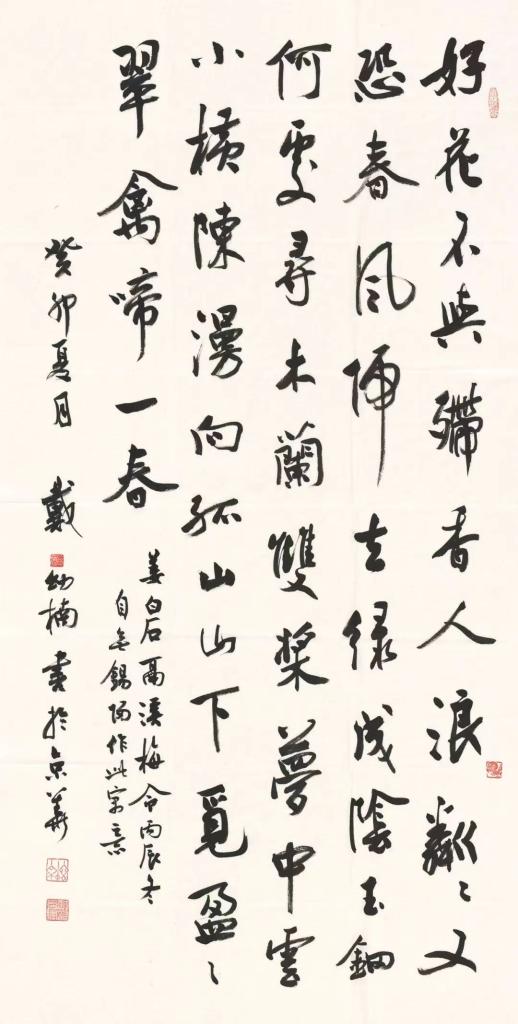 好花不與殢香人浪粼〻又
恐春風歸去緑成陰玉鈿
何處尋木蘭雙槳夢中雲
小横陳漫向孤山山下覓盈〻
翠禽啼一春
姜白石鬲溪梅令丙辰冬
自無錫歸作此寓意
癸卯夏月 戴幼楠書於京華